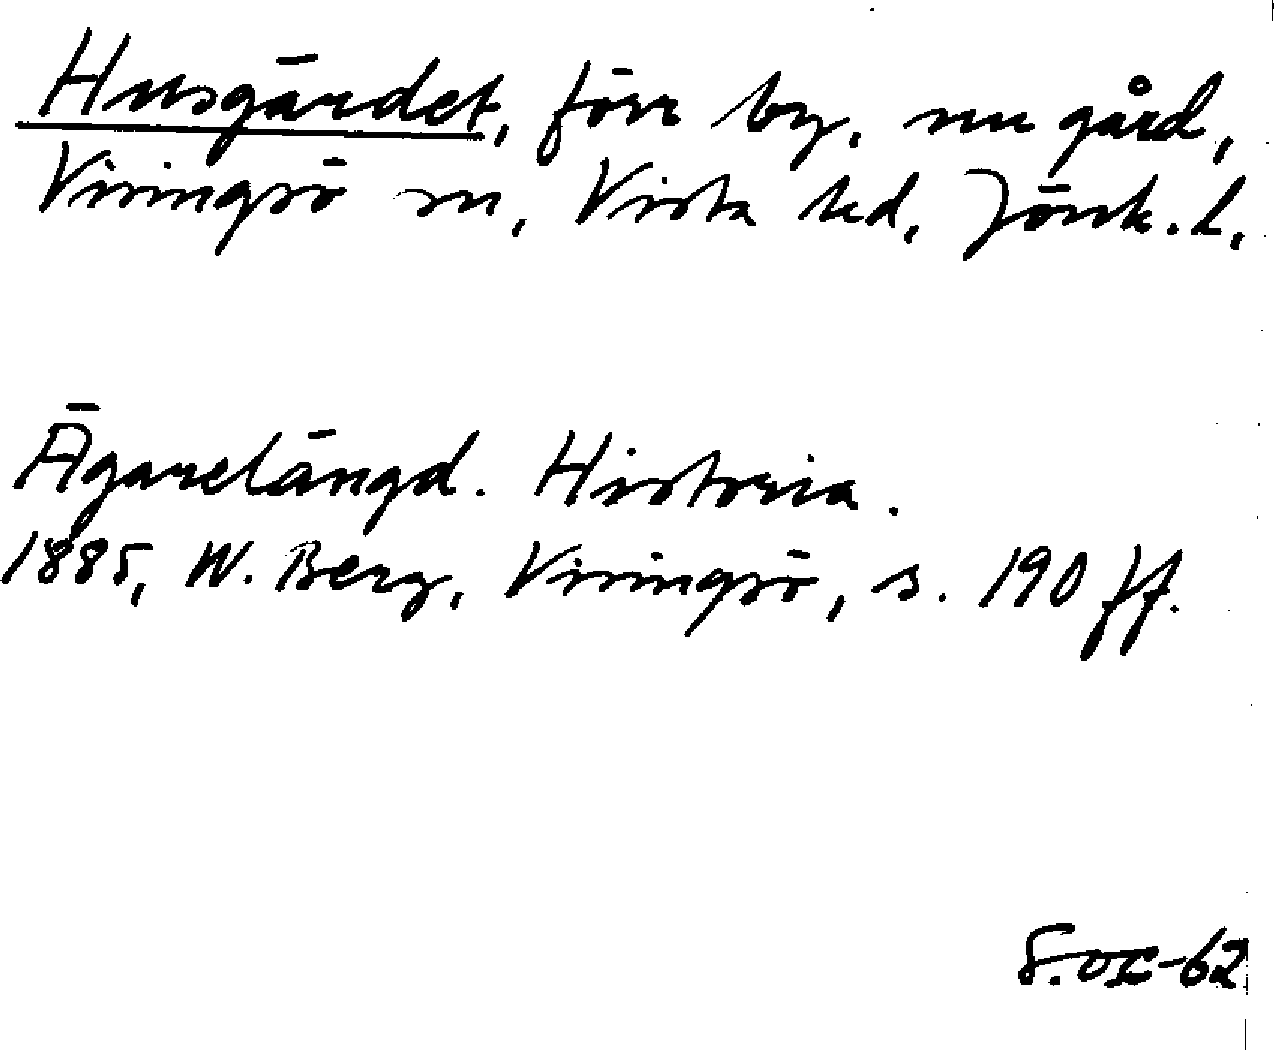 Husgärdet, förr by, nu gård,
Visingsö sn, Vista hd, Jönk. l.
Ägarelängd. Historia.
1885, W. Berg, Visingsö, s. 190 ff.